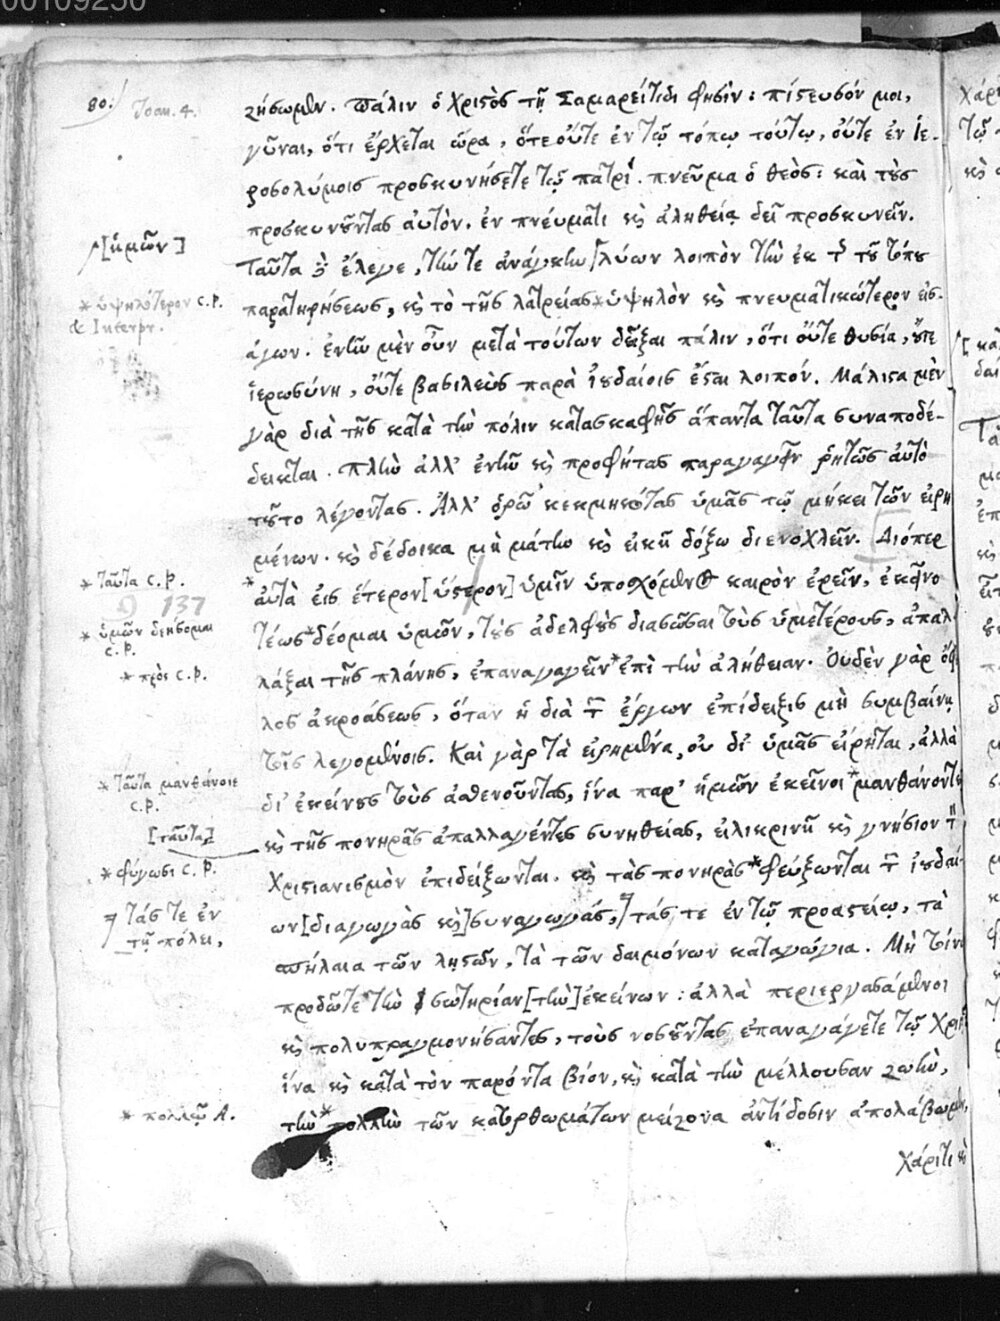 00109250
80.
Joan. 4.
ζήσωμεν. πάλιν ὁ Χριστὸς τῇ Σαμαρείτιδι φησίν: πίστευσόν μοι,
γύναι, ὅτι ἔρχεται ὥρα, ὅτε οὔτε ἐν τῷ τόπῳ τούτῳ, οὔτε ἐν Ἱε-
ροσολύμοις προσκυνήσετε τῷ πατρί. πνεῦμα ὁ θεὸς: καὶ τοὺς
προσκυνοῦντας αὐτὸν. ἐν πνεύματι καὶ ἀληθείᾳ δεῖ προσκυνεῖν.
[ἡμῶν]
Ταῦτα δὲ ἔλεγε, τήν τε ἀνάγκην λύων λοιπὸν τὴν ἐκ τῆς τοῦ τόπου
* ὑψηλότερον C.P.
& Interpr.
παρατηρήσεως, καὶ τὸ τῆς λατρείας * ὑψηλὸν καὶ πνευματικώτερον εἰσ-
άγων. ἐνῆν μὲν οὖν μετὰ τούτων δεῖξαι πάλιν, ὅτι οὔτε θυσία, οὔτε
ἱερωσύνη, οὔτε βασιλεὺς παρὰ ἰουδαίοις ἔσται λοιπόν. Μάλιστα μὲν
γὰρ διὰ τῆς κατὰ τὴν πόλιν κατασκαφῆς ἅπαντα ταῦτα συναποδέ-
δεικται. πλὴν ἀλλ' ἐνῆν καὶ προφήτας παραγαγεῖν ῥητῶς αὐτὸ
τοῦτο λέγοντας. Ἀλλ' ὁρῶ κεκμηκότας ὑμᾶς τῷ μήκει τῶν εἰρη
μένων. καὶ δέδοικα μὴ μάτην καὶ εἰκῆ δόξω διενοχλεῖν. Διόπερ
* ταῦτα C.P.
* αὐτὰ εἰς ἕτερον [ὕστερον] ὑμῖν ὑποσχόμενος καιρὸν ἐρεῖν, ἐκεῖνο
137
* ὑμῶν δεήσομαι
C.P.
τέως * δέομαι ὑμῶν, τοὺς ἀδελφοὺς διασῶσαι τοὺς ὑμετέρους, ἀπαλ
* πρὸς C.P.
λάξαι τῆς πλάνης, ἐπαναγαγεῖν * ἐπὶ τὴν ἀλήθειαν. Οὐδὲν γὰρ ὄφε
λος ἀκροάσεως, ὅταν ἡ διὰ τῶν ἔργων ἐπίδειξις μὴ συμβαίνῃ
τοῖς λεγομένοις. Καὶ γὰρ τὰ εἰρημένα, οὐ δι' ὑμᾶς εἴρηται, ἀλλὰ
* ταῦτα μανθάνοντες
C.P.
δι' ἐκείνους τοὺς ἀσθενοῦντας, ἵνα παρ' ἡμῶν ἐκεῖνοι * μανθάνοντες
[ταῦτα]
καὶ τῆς πονηρᾶς ἀπαλλαγέντες συνηθείας, εἰλικρινῆ καὶ γνήσιον τὸν
* φύγωσι C.P.
Χριστιανισμὸν ἐπιδείξωνται. καὶ τὰς πονηρὰς * φεύξωνται τῶν ἰουδαί-
τάς τε ἐν
τῇ πόλει,
ων [διαγωγὰς καὶ] συναγωγάς, τάς τε ἐν τῷ προαστείῳ, τὰ
σπήλαια τῶν λῃστῶν, τὰ τῶν δαιμόνων καταγώγια. Μὴ τοίνυν
προδῶτε τὴν σωτηρίαν [τὴν] ἐκείνων: ἀλλὰ περιεργασάμενοι
καὶ πολυπραγμονήσαντες, τοὺς νοσοῦντας ἐπαναγάγετε τῷ Χριστῷ
ἵνα καὶ κατὰ τὸν παρόντα βίον, καὶ κατὰ τὴν μέλλουσαν ζωὴν,
* πολλῷ A.
τὴν * πολλὴν τῶν κατορθωμάτων μείζονα ἀντίδοσιν ἀπολάβωμεν,
χάριτι καὶ